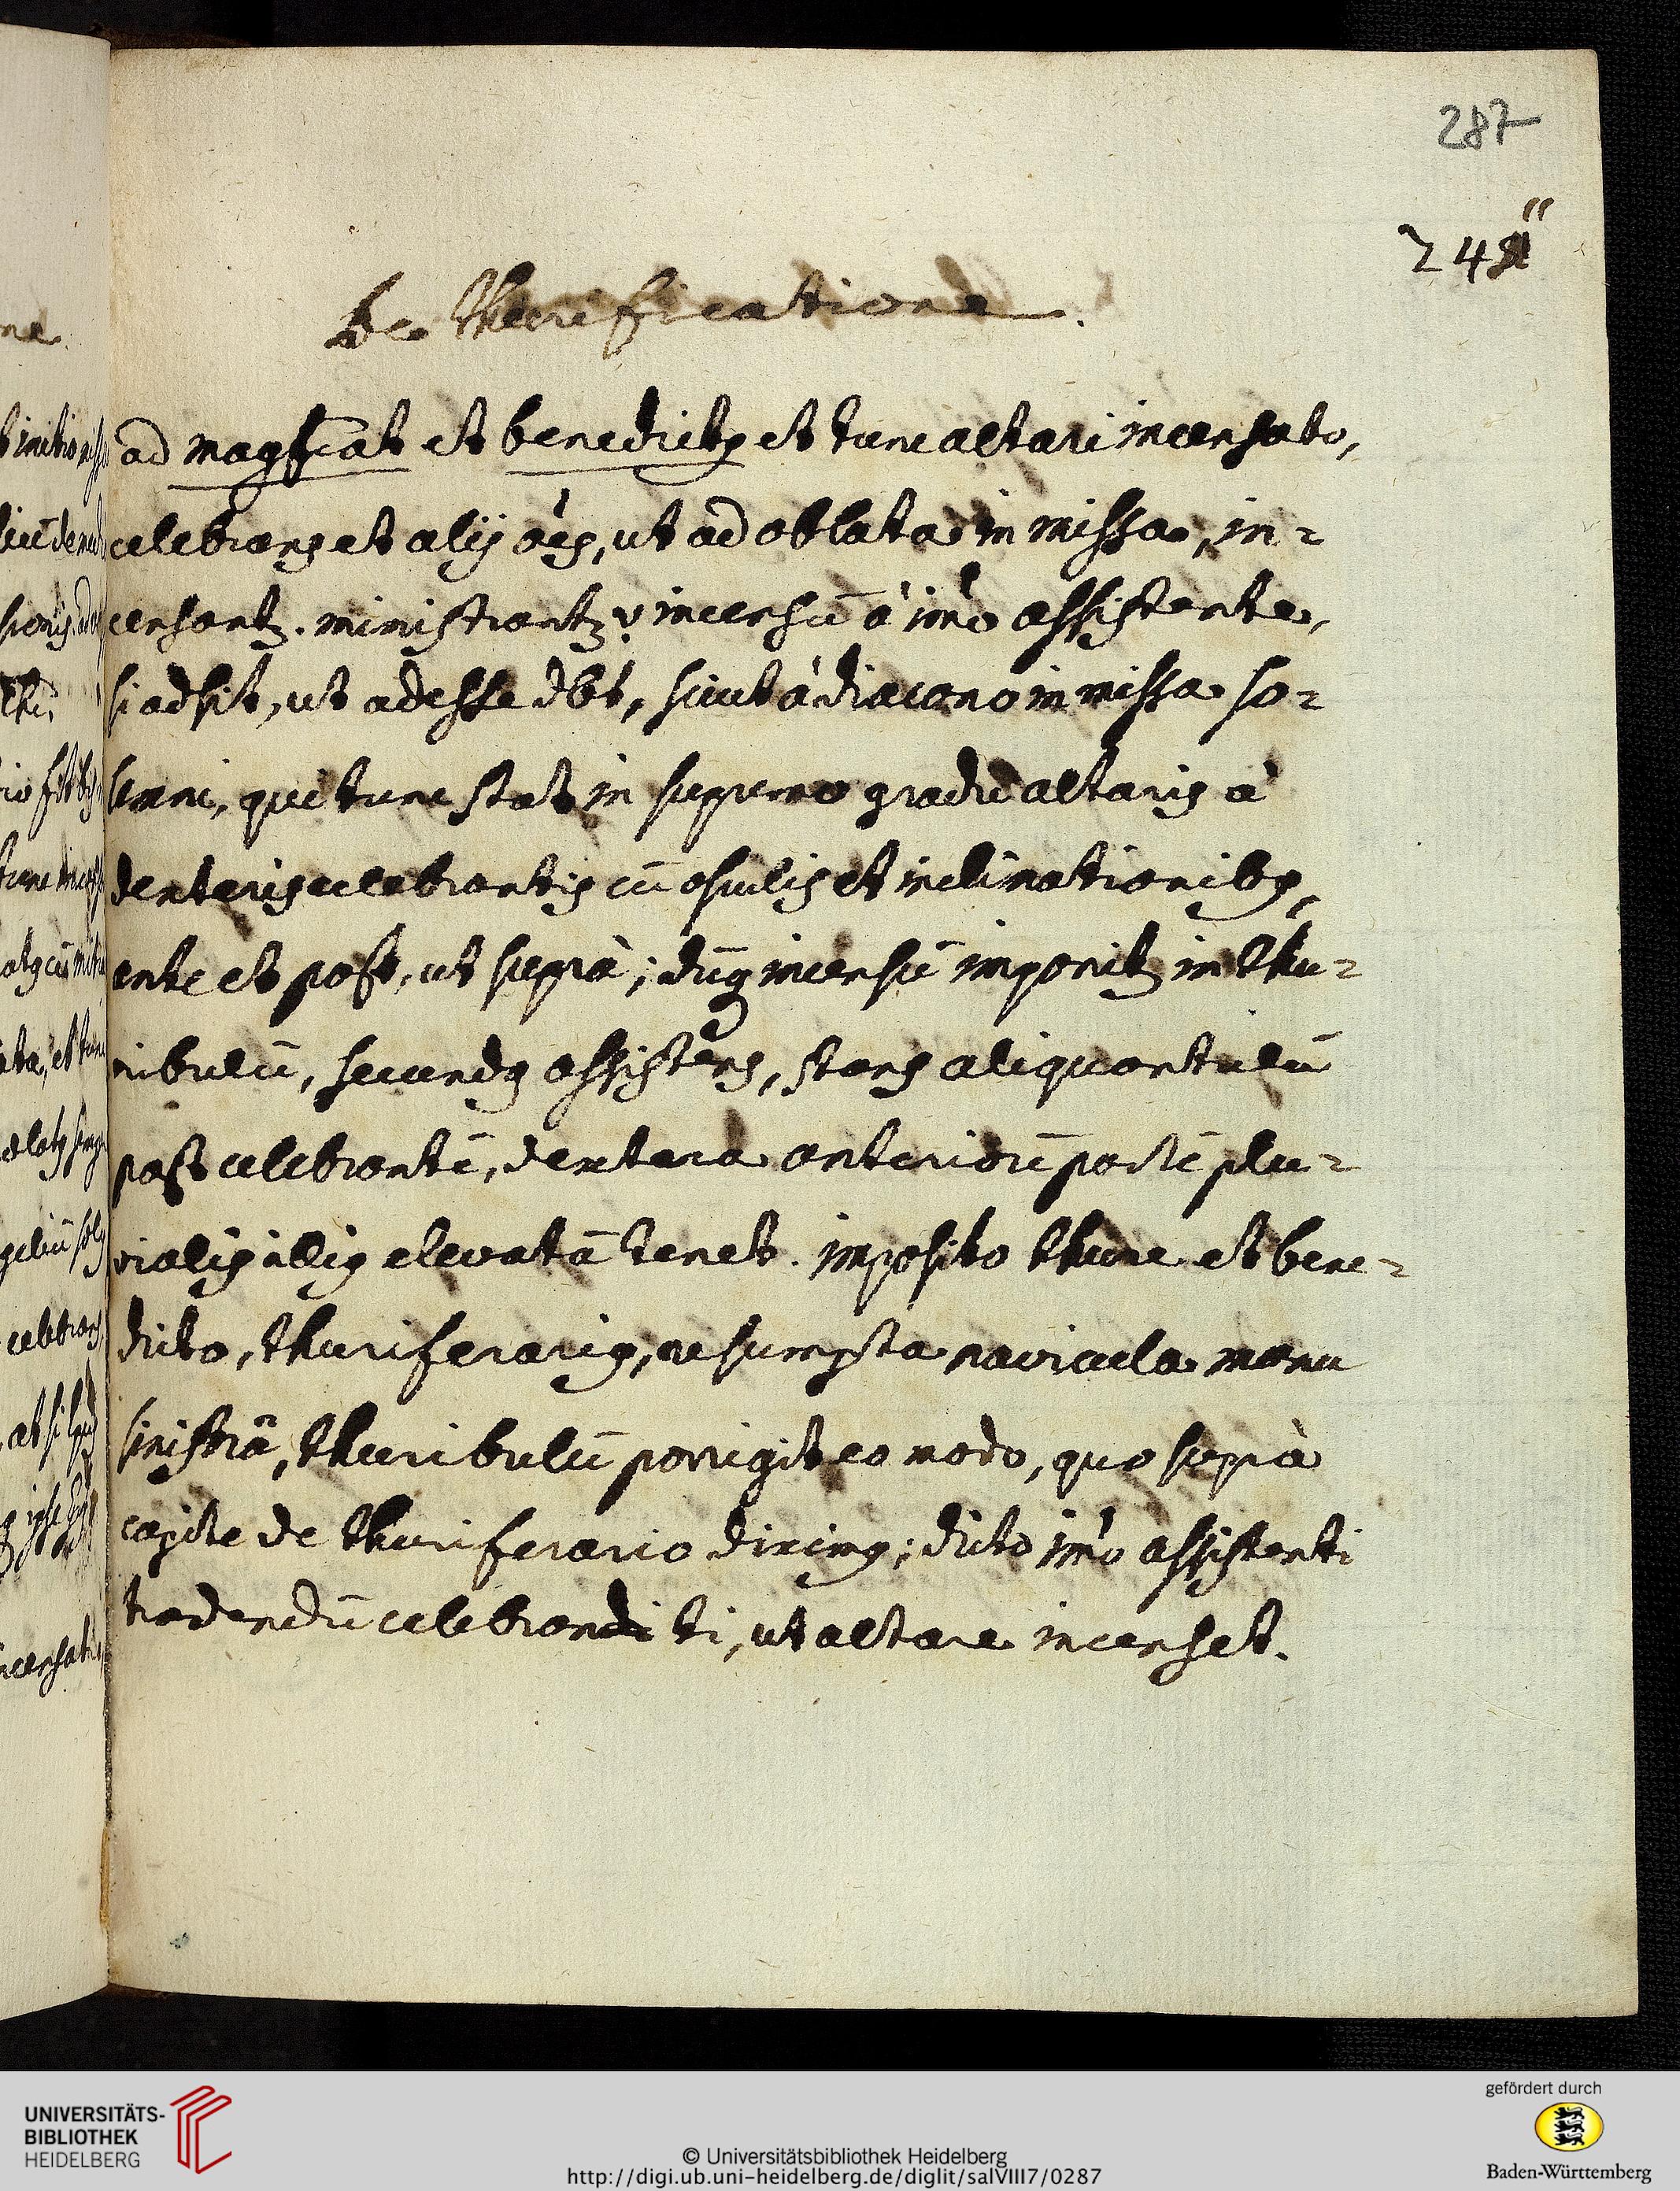 287
De thurificatione.
ad magficat et benedictꝰ et tunc altari incensato,
celebrans et alij oēs, ut ad oblata in missa, in-
censantꝛ. ministrantꝛ incensū à imo assistente,
si adsit, ut adesse dbt, sicut à diacono in missa so-
lemni, qui tunc stat in supremo gradu altaris à
dexteris celebrantis cū osculis et inclinationibꝰ,
ante et post, ut suprà; dūq incensū imponitꝛ in thu-
ribulū, secundꝰ assistens, stans aliquantulū
post celebrantē, dextera anteriorē partē plu-
vialis illiꝰ elevatā tenet. imposito thure et bene-
dicto, thuriferariꝰ, resumpta navicula manu
sinistrâ, thuribulū porrigit eo modo, quo suprà
capite de thuriferario diximꝰ; dicto imo assistenti
tradendū celebranti, ut altare incenset.
UNIVERSITÄTS-
BIBLIOTHEK
HEIDELBERG
© Universitätsbibliothek Heidelberg
http://digi.ub.uni-heidelberg.de/diglit/salVIII7/0287
gefördert durch
Baden-Württemberg